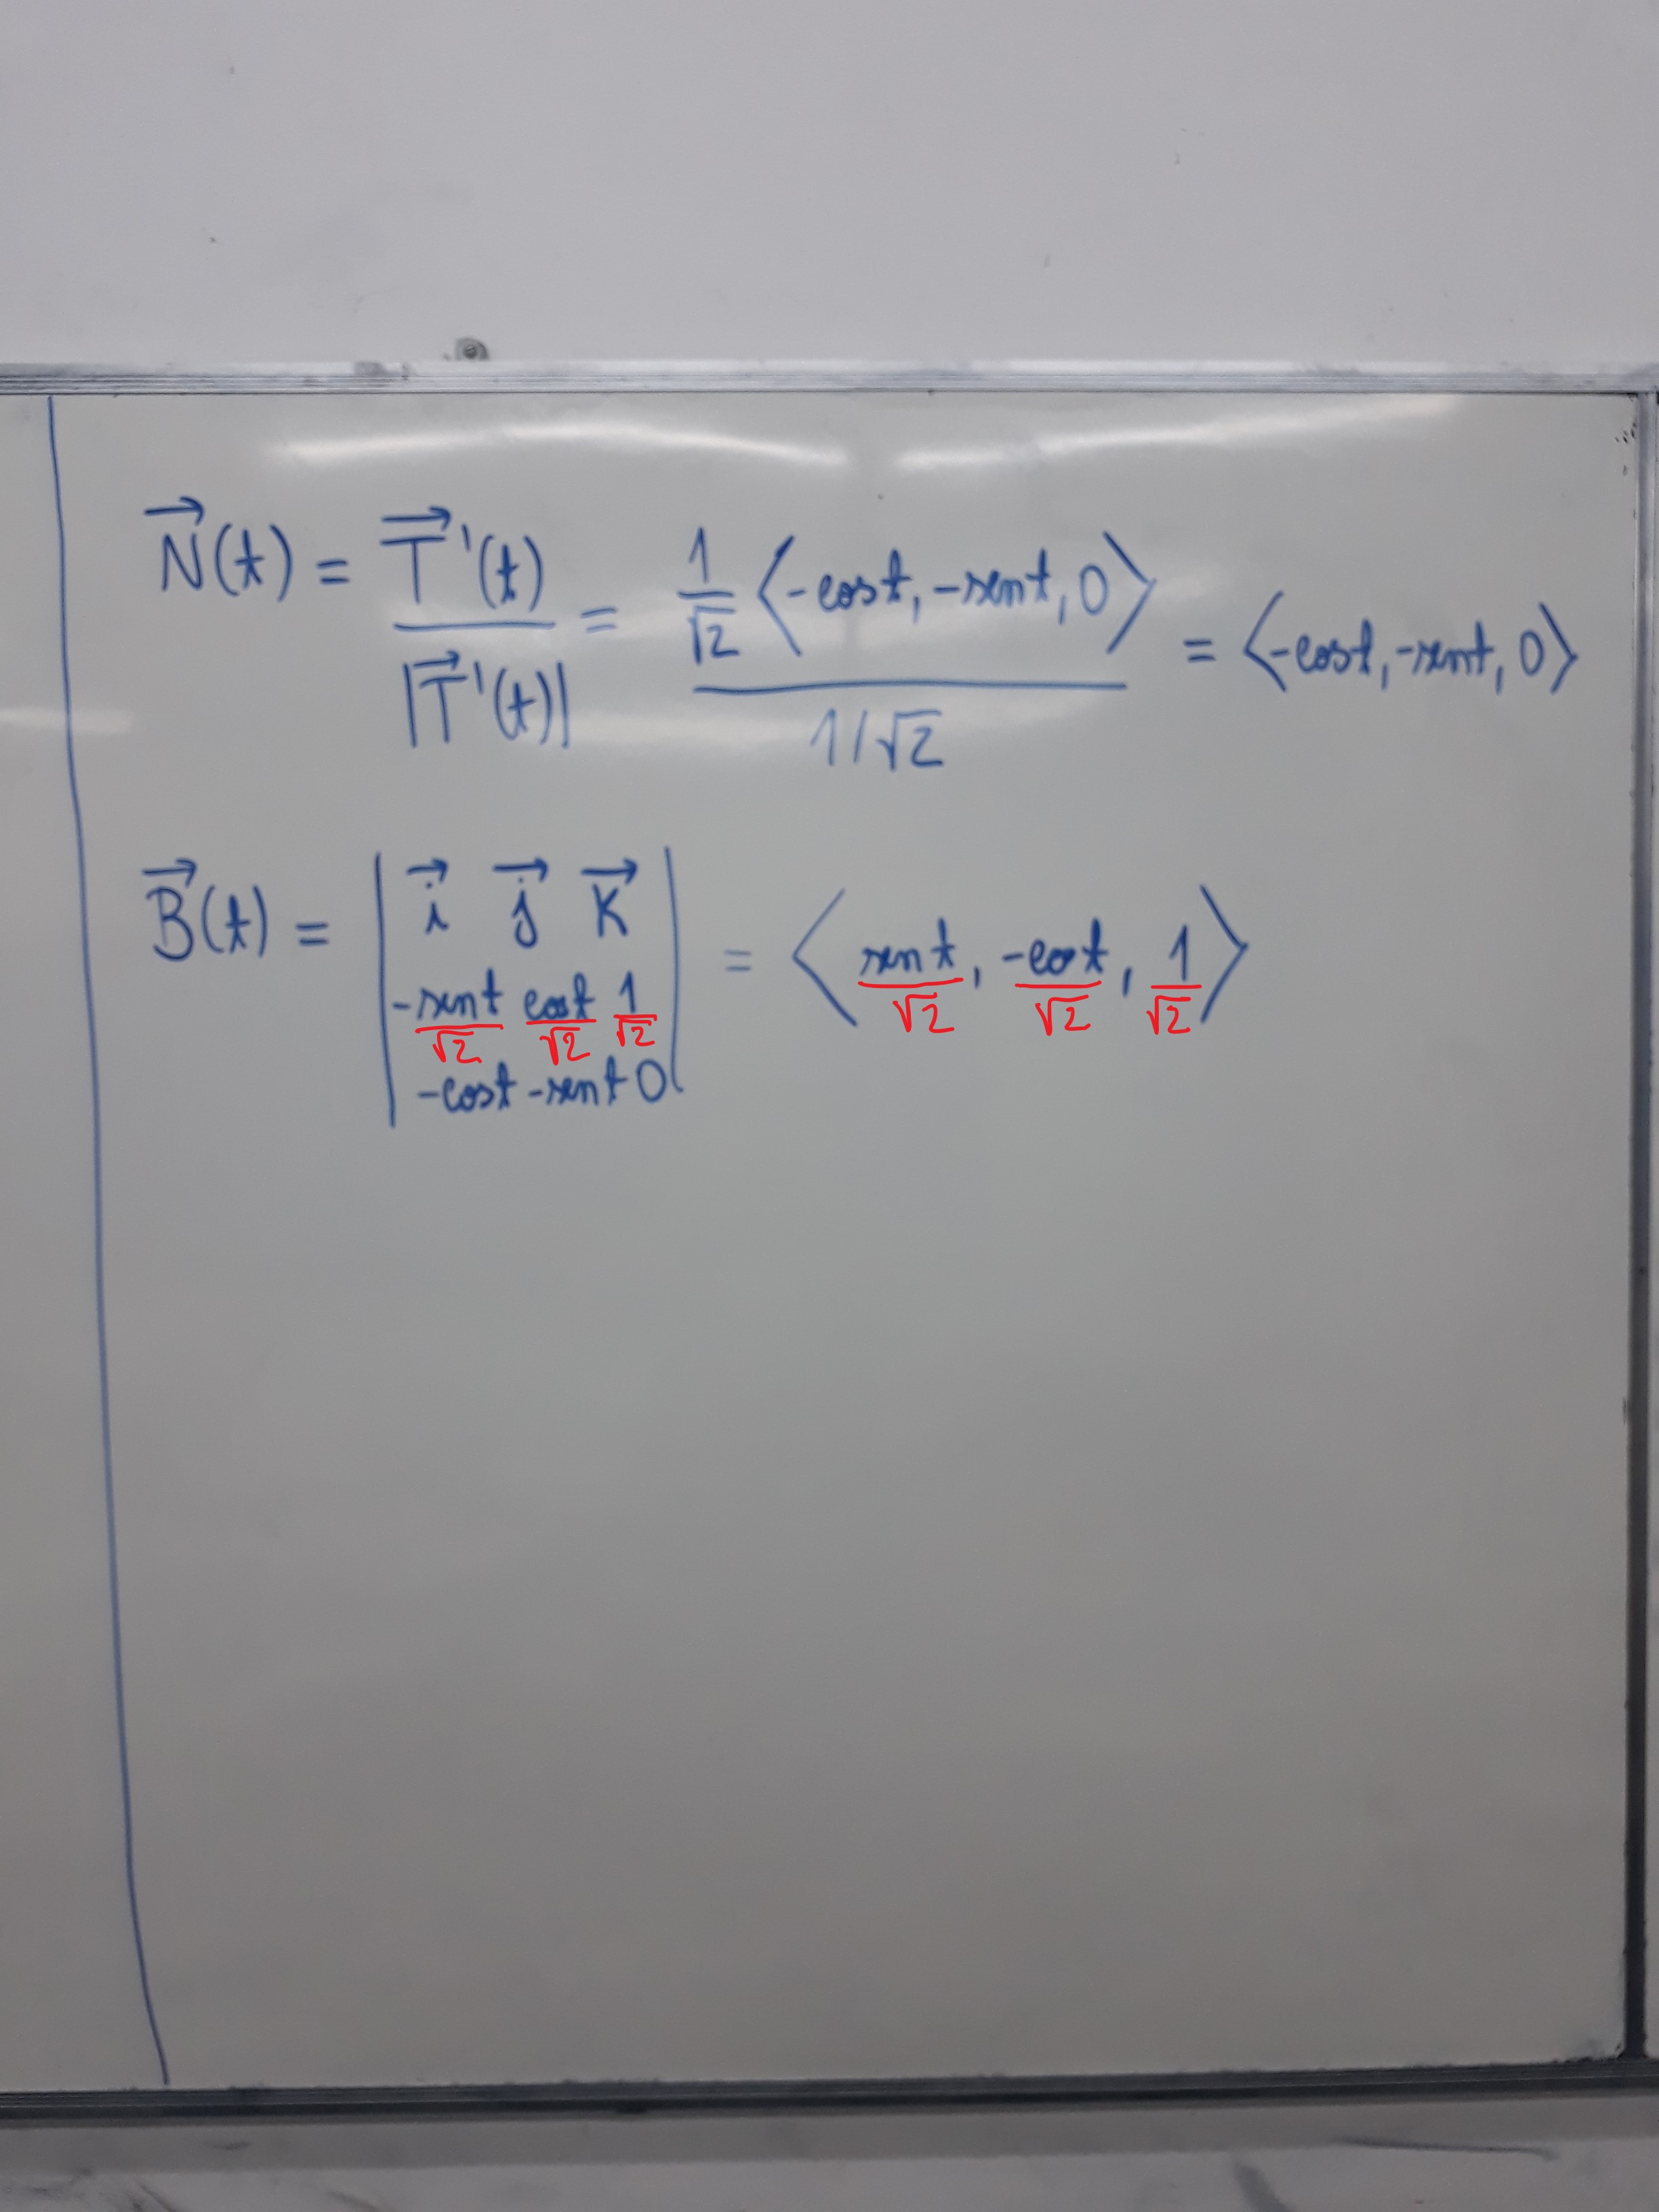 $\vec{N}(t) = \frac{\vec{T}'(t)}{|\vec{T}'(t)|} = \frac{\frac{1}{\sqrt{2}} \langle -\cos t, -\operatorname{sen} t, 0 \rangle}{1/\sqrt{2}} = \langle -\cos t, -\operatorname{sen} t, 0 \rangle$
$\vec{B}(t) = \begin{vmatrix} \vec{i} & \vec{j} & \vec{K} \\ \frac{-\operatorname{sen} t}{\sqrt{2}} & \frac{\cos t}{\sqrt{2}} & \frac{1}{\sqrt{2}} \\ -\cos t & -\operatorname{sen} t & 0 \end{vmatrix} = \left\langle \frac{\operatorname{sen} t}{\sqrt{2}}, \frac{-\cos t}{\sqrt{2}}, \frac{1}{\sqrt{2}} \right\rangle$